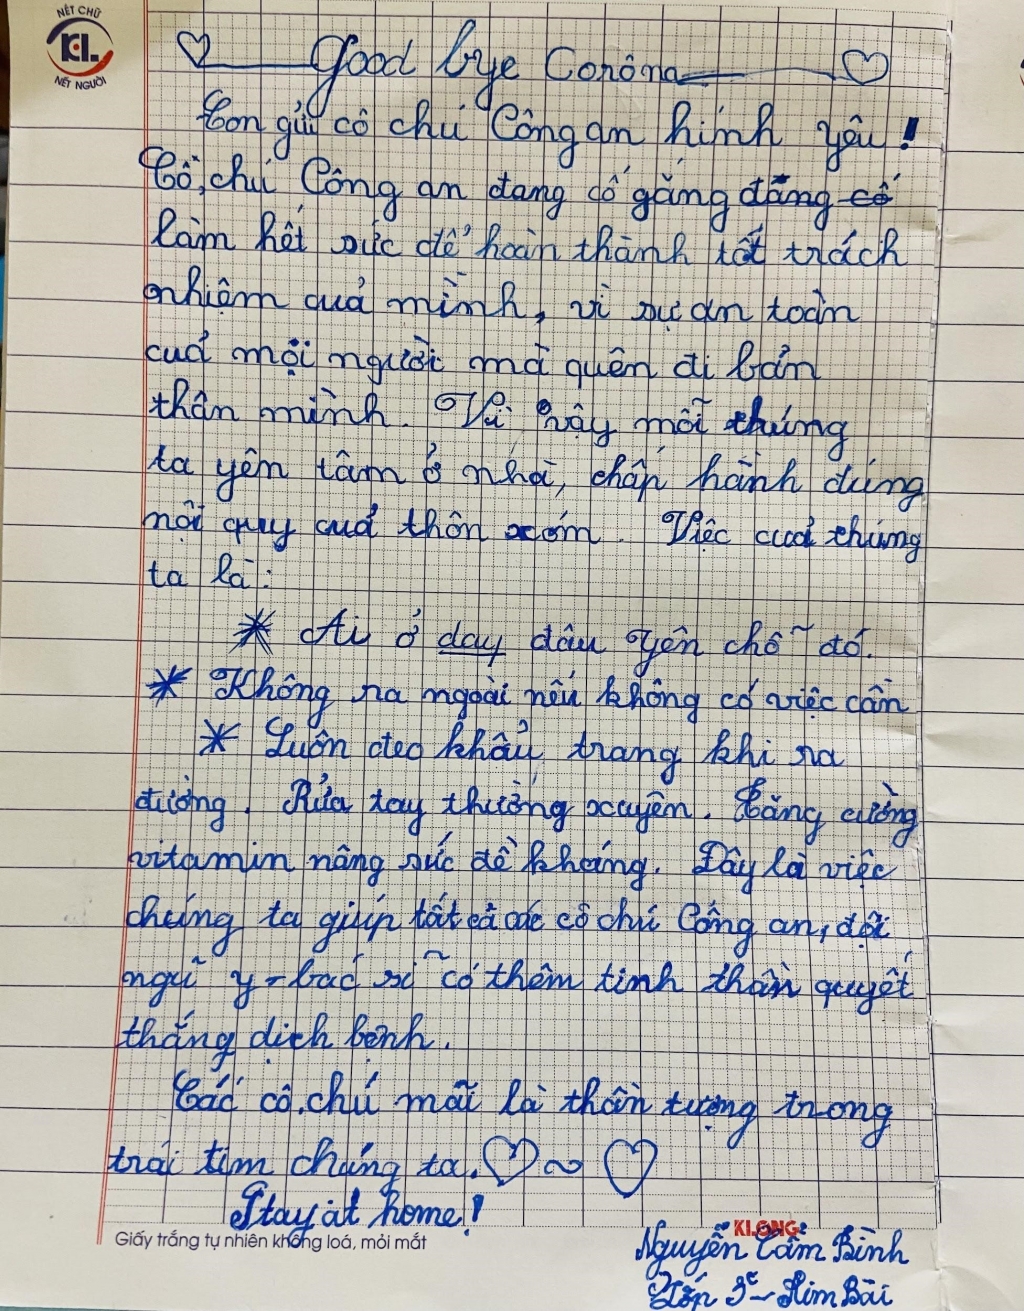 NÉT CHỮ
KL
NÉT NGƯỜI
Good bye Corôna
Con gửi cô chú Công an kính yêu!
Cô, chú Công an đang cố gắng đăng cố
làm hết sức để hoàn thành tốt trách
nhiệm của mình, vì sự an toàn
của mọi người mà quên đi bản
thân mình. Vì vậy mỗi chúng
ta yên tâm ở nhà, chấp hành đúng
nội quy của thôn xóm. Việc của chúng
ta là:
* Ai ở day đâu yên chỗ đó.
* Không ra ngoài nếu không có việc cần
* Luôn đeo khẩu trang khi ra
đường. Rửa tay thường xuyên. Tăng cường
vitamin nâng sức đề kháng. Đây là việc
chúng ta giúp tất cả các cô chú Công an, đội
ngũ y-bác sĩ có thêm tinh thần quyết
thắng dịch bệnh.
Các cô, chú mãi là thần tượng trong
trái tim chúng ta.
Stay at home!
KLONG
Giấy trắng tự nhiên không loá, mỏi mắt
Nguyễn Cẩm Bình
Lớp 3c - Kim Bài